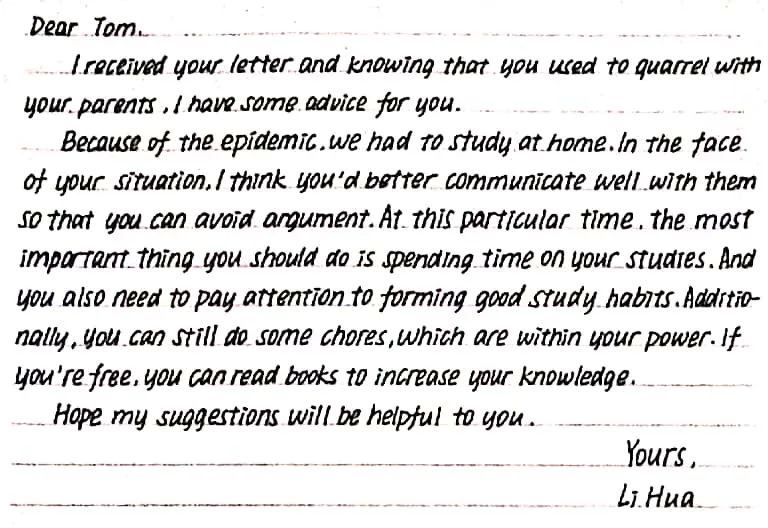 Dear Tom.
I received your letter and knowing that you used to quarrel with
your parents, I have some advice for you.
Because of the epidemic, we had to study at home. In the face
of your situation, I think you'd better communicate well with them
so that you can avoid argument. At this particular time, the most
important thing you should do is spending time on your studies. And
you also need to pay attention to forming good study habits. Additio-
nally, you can still do some chores, which are within your power. If
you're free, you can read books to increase your knowledge.
Hope my suggestions will be helpful to you.
Yours,
Li Hua